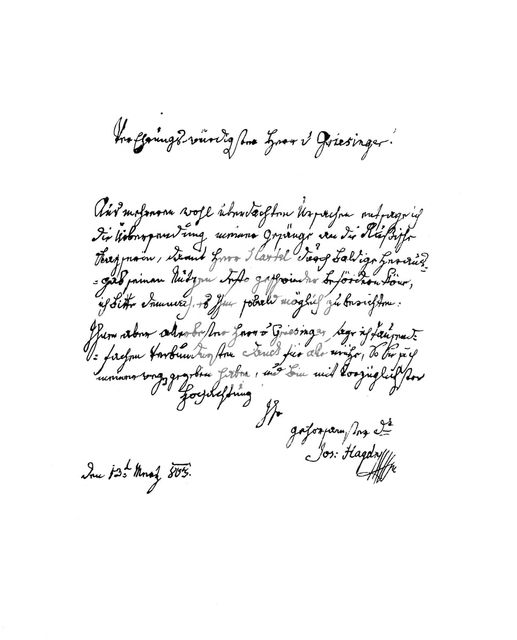 Verehrungswürdigster Herr v Griesinger!
Aus mehreren wohl überdachten Ursachen entsage ich
die Übersendung meiner Gesänge an die Russische
Kayserin, damit Herr Härtel durch baldige Heraus-
=gab seinen Nutzen desto geschwinder befördern könne,
ich bitte demnach, es Ihm sobald möglich zu berichten.
Ihnen aber aller bester Herr v Griesinger, sage ich tausend-
=fachen verbundensten Danck für alle mühe, so Sie sich
meinetweg gegeben haben, und bin mit vorzüglichster
Hochachtung
Ihr
gehorsamster
Jos: Haydn
den 13t Merz 803.